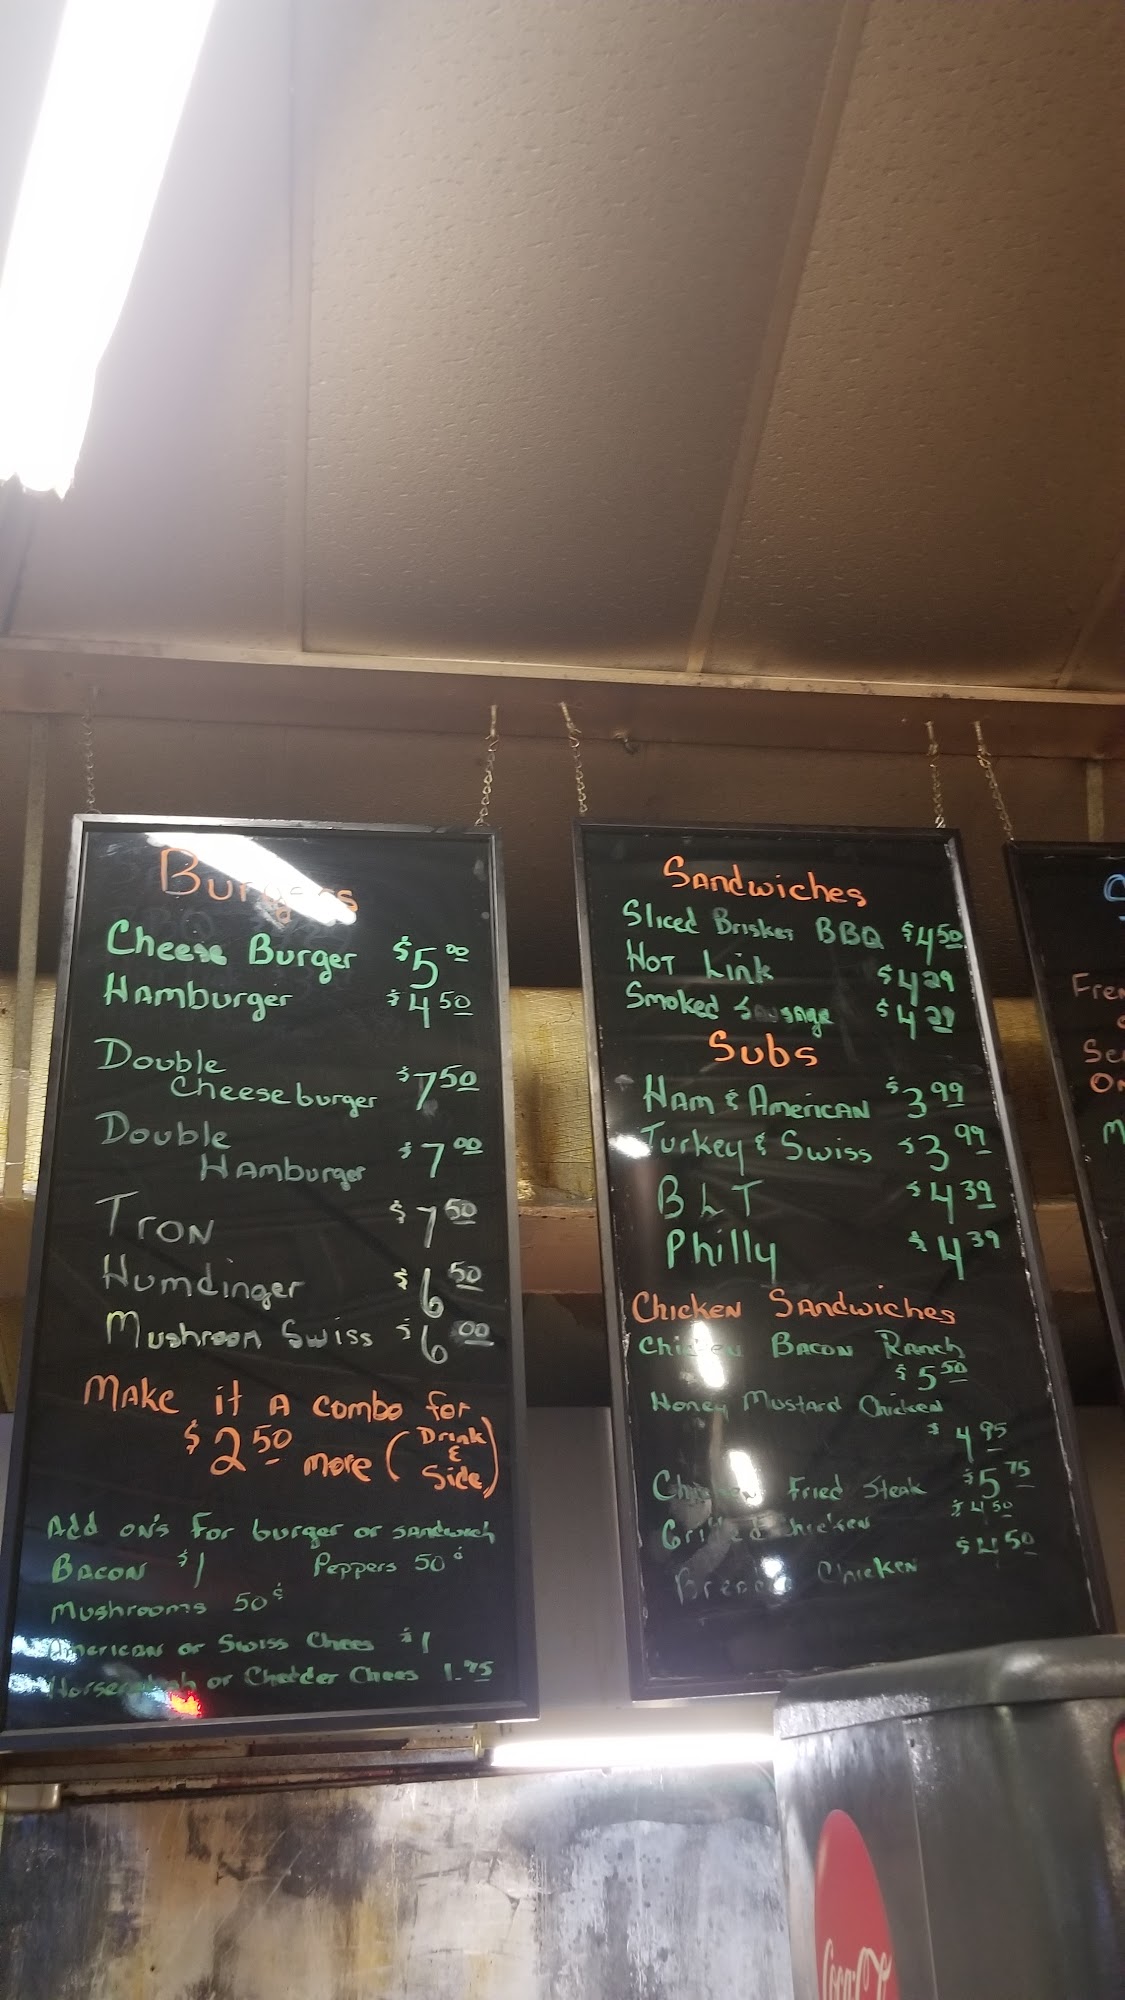 Burgers
Cheese Burger $5 00
Hamburger $4 50
Double
Cheeseburger $7 50
Double
Hamburger $7 00
Tron $7 50
Humdinger $6 50
Mushroom Swiss $6 00
Make it A combo for
$2 50 more (Drink & Side)
Add on's for burger or sandwich
Bacon $1 Peppers 50¢
Mushrooms 50¢
American or Swiss Chees $1
or Chedder Chees 1.75
Sandwiches
Sliced Brisket BBQ $4 50
Hot Link $4 29
Smoked Sausage $4 29
Subs
Ham & American $3 99
Turkey & Swiss $3 99
BLT $4 39
Philly $4 39
Chicken Sandwiches
Chicken Bacon Ranch
$5 50
Honey Mustard Chicken
$4 95
Chicken Fried Steak $5 75
Grilled Chicken $4 50
Chicken $4 50
On
Coca-C